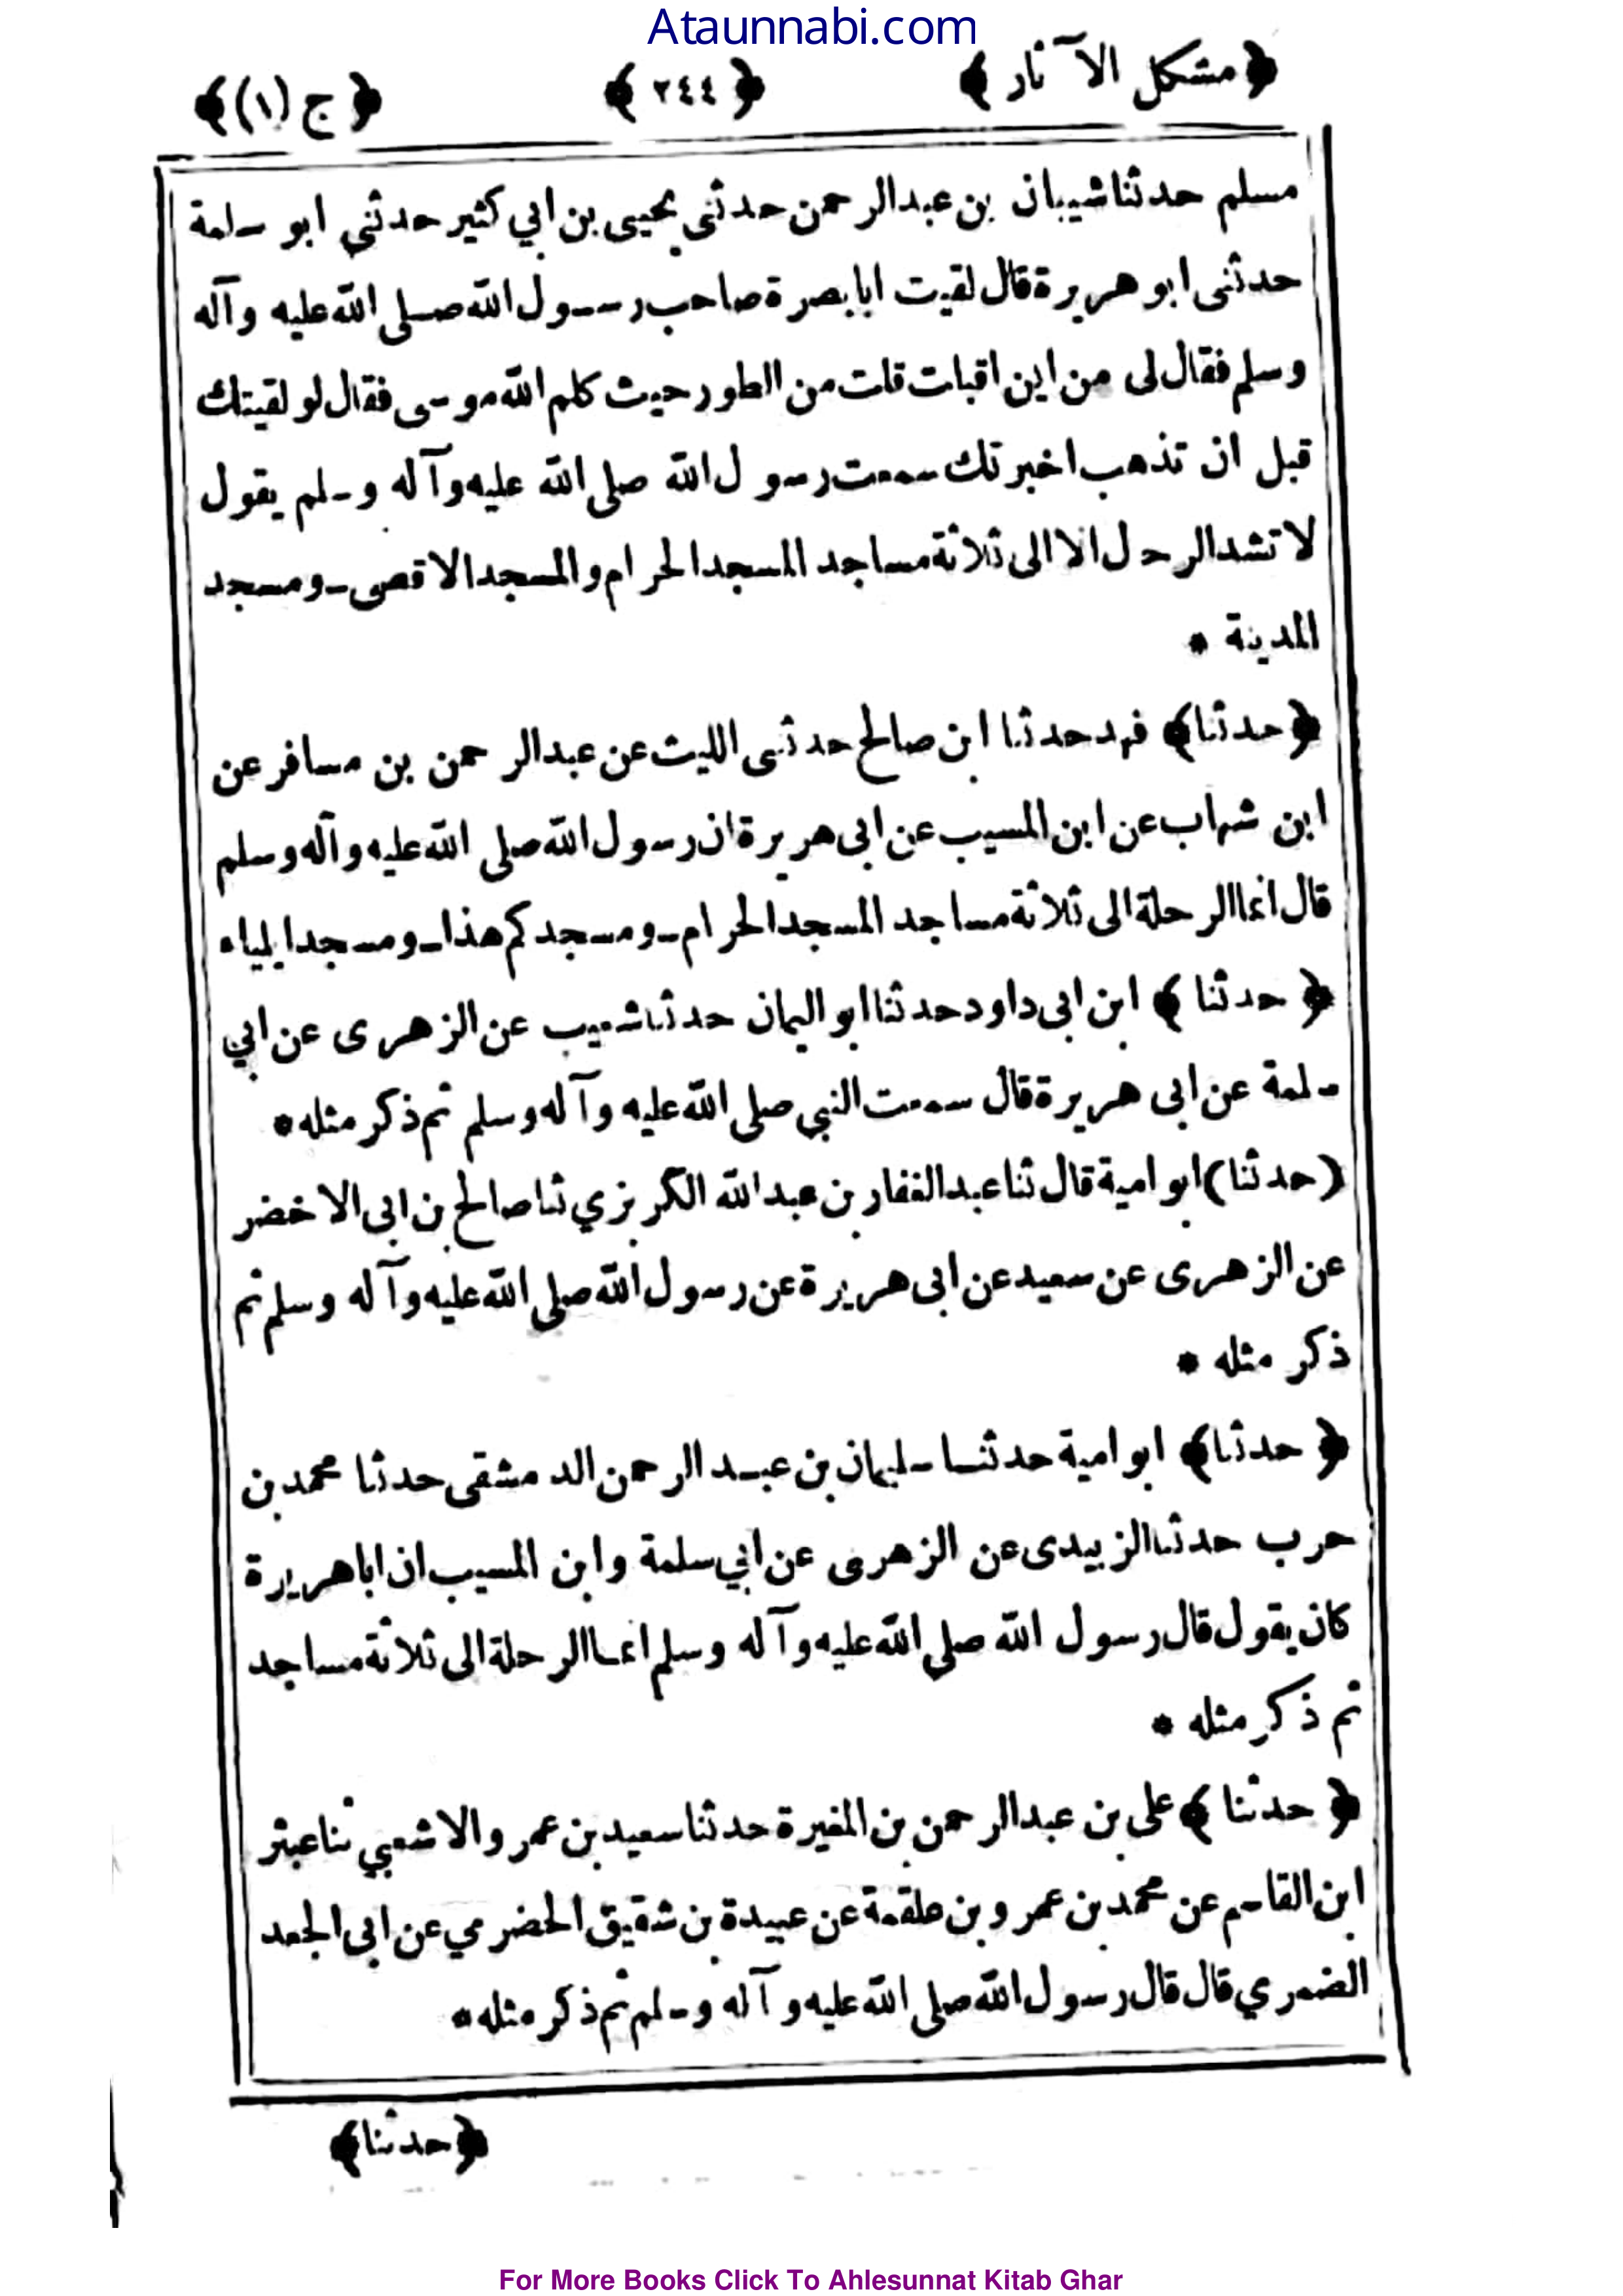 Ataunnabi.com
﴿ مشكل الآثار ﴾ ﴿ ٢٤٤ ﴾ ﴿ ج (١) ﴾
مسلم حدثنا شيبان بن عبدالرحمن حدثنى يحيى بن ابي كثير حدثني ابو سلمة
حدثنى ابو هريرة قال لقيت ابا بصرة صاحب رسول الله صلى الله عليه وآله
وسلم فقال لى من اين اقبات قلت من الطور حيث كلم الله موسى فقال لو لقيتك
قبل ان تذهب اخبرتك سمعت رسول الله صلى الله عليه وآله وسلم يقول
لا تشد الرحال الا الى ثلاثة مساجد المسجد الحرام والمسجد الاقصى ـ ومسجد
المدينة *
﴿ حدثنا ﴾ فهد حدثنا ابن صالح حدثنى الليث عن عبدالرحمن بن مسافر عن
ابن شهاب عن ابن المسيب عن ابى هريرة ان رسول الله صلى الله عليه وآله وسلم
قال انما الرحلة الى ثلاثة مساجد المسجد الحرام ـ ومسجدكم هذا ـ ومسجد ايلياء
﴿ حدثنا ﴾ ابن ابى داود حدثنا ابو اليمان حدثنا شعيب عن الزهرى عن ابي
سلمة عن ابى هريرة قال سمعت النبي صلى الله عليه وآله وسلم ثم ذكر مثله *
( حدثنا ) ابو امية قال ثنا عبد الغفار بن عبد الله الكريزي ثنا صالح بن ابى الاخضر
عن الزهرى عن سعيد عن ابى هريرة عن رسول الله صلى الله عليه وآله وسلم ثم
ذكر مثله *
﴿ حدثنا ﴾ ابو امية حدثنا سليمان بن عبد الرحمن الدمشقى حدثنا محمد بن
حرب حدثنا الزبيدى عن الزهرى عن ابي سلمة وابن المسيب ان ابا هريرة
كان يقول قال رسول الله صلى الله عليه وآله وسلم انما الرحلة الى ثلاثة مساجد
ثم ذكر مثله *
﴿ حدثنا ﴾ على بن عبدالرحمن بن المغيرة حدثنا سعيد بن عمرو الاشعبي ثنا عبثر
ابن القاسم عن محمد بن عمرو بن علقمة عن عبيدة بن شقيق الحضرمي عن ابى الجعد
الضمري قال قال رسول الله صلى الله عليه وآله وسلم ثم ذكر مثله *
﴿ حدثنا ﴾
For More Books Click To Ahlesunnat Kitab Ghar